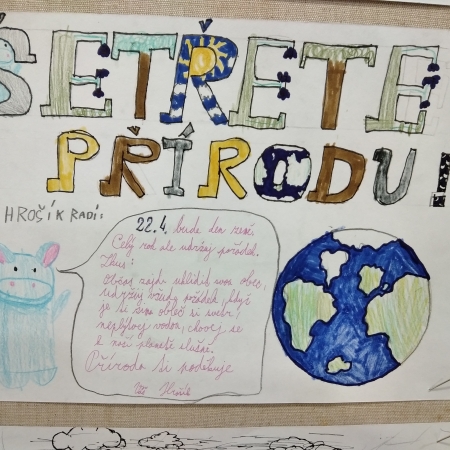 ŠETŘETE
PŘÍRODU!
HROŠÍK RADÍ:
22.4. bude den země
Celý rok ale udržuj pořádek.
Zkus:
Občas zajdi uklidit svou obec,
udržuj všude pořádek, když
je ti zima obleč si svetr,
neplýtvej vodou, chovej se
k naší planetě slušně.
Příroda ti poděkuje
Váš Hrošík